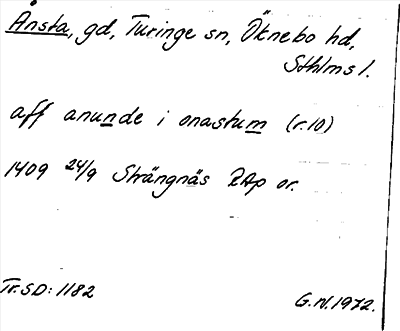 Ånsta, gd, Turinge sn, Öknebo hd,
Sthlms l.
aff anunde i onastum (r.10)
1409 24/9 Strängnäs RAp or.
Tr. SD: 1182
G.N. 1972.